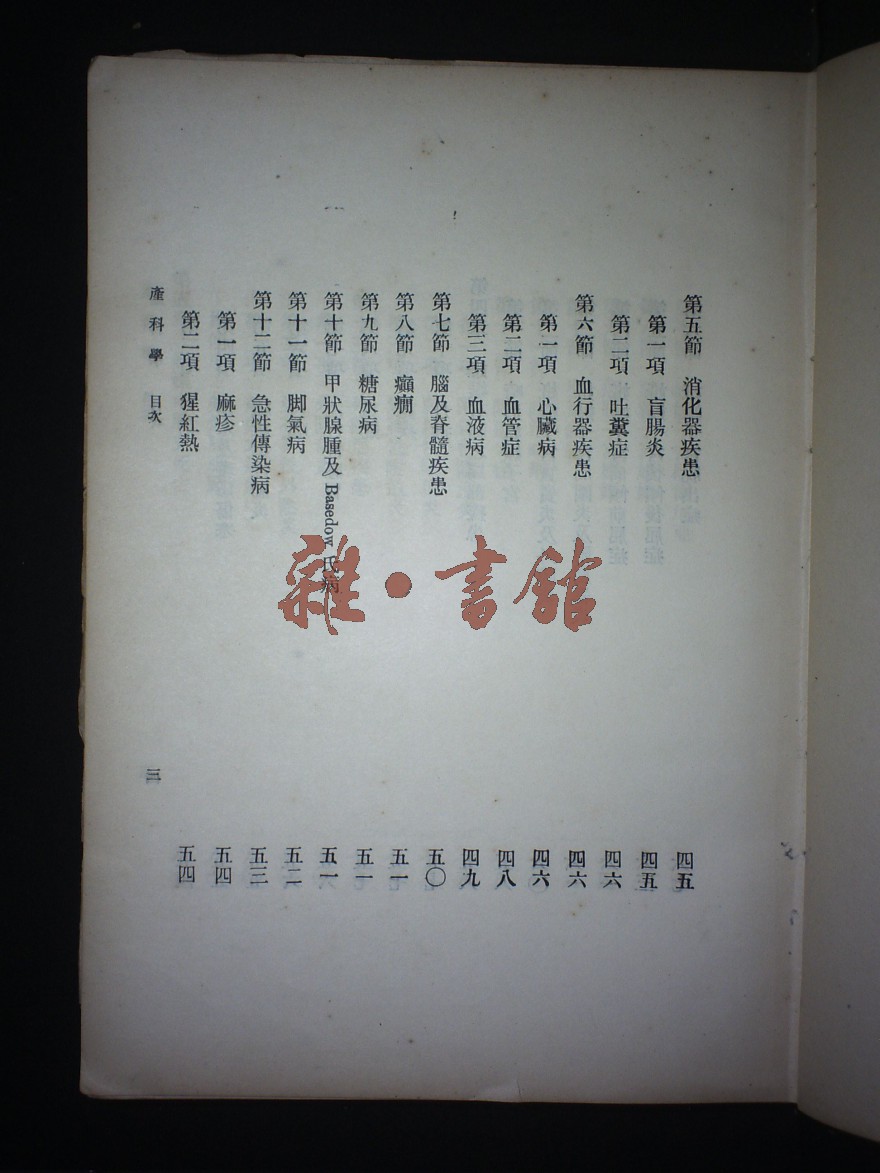 第五節 消化器疾患 四五
第一項 盲腸炎 四五
第二項 吐糞症 四六
第六節 血行器疾患 四六
第一項 心臟病 四六
第二項 血管症 四八
第三項 血液病 四九
第七節 腦及脊髓疾患 五〇
第八節 癲癇 五一
第九節 糖尿病 五一
第十節 甲狀腺腫及 Basedow 氏病 五一
第十一節 脚氣病 五二
第十二節 急性傳染病 五三
第一項 麻疹 五四
第二項 猩紅熱 五四
產科學 目次 三
雜·書館